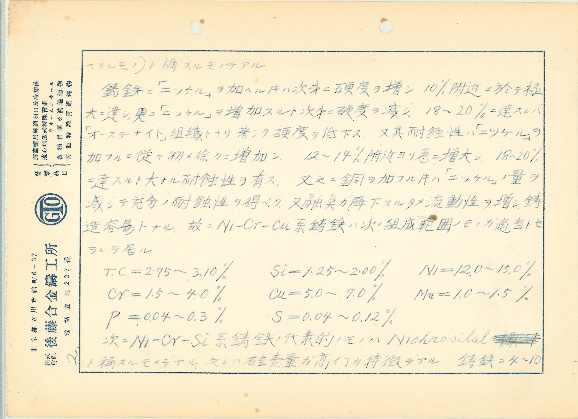 ト稱スルモノデアル
鑄鉄ニ「ニッケル」ヲ加ヘル片ハ次第ニ硬度ヲ增シ 10%附近ニ於テ極
大ニ達シ更ニ「ニッケル」ヲ増加スルト次第ニ硬度ヲ減シ 18~20%ニ達スレバ
「オーステナイト」組織トナリ著シク硬度ヲ低下ス 又其耐蝕性ハ「ニッケル」ヲ
加フルニ從テ初メ徐々ニ増加シ 12~14%附近ヨリ急ニ増大シ 18~20%
ニ達スルト大ナル耐蝕性ヲ有ス 又之ニ銅ヲ加フル片ハ「ニッケル」ノ量ヲ
減シテ充分ノ耐蝕性ヲ得ベク又融点カ降下スルタメ流動性ヲ增シ鑄
造容易トナル 故ニNi-Cr-Cu系鑄鉄ハ次ノ組成範囲ノモノカ適当トセ
ラレテ居ル
T.C=2.75~3.10% Si=1.25~2.00% Ni=12.0~15.0%
Cr=1.5~4.0% Cu=5.0~7.0% Mn=1.0~1.5%
P=0.04~0.3% S=0.04~0.12%
次ニNi-Cr-Si系鑄鉄ノ代表的ノモノハ Nichrosilal
ト稱スルモノデアル 之レハ硅素量カ高イノカ特徴デアル 鑄鉄ニ4~10
2.
GTO
後藤合金鑄工所